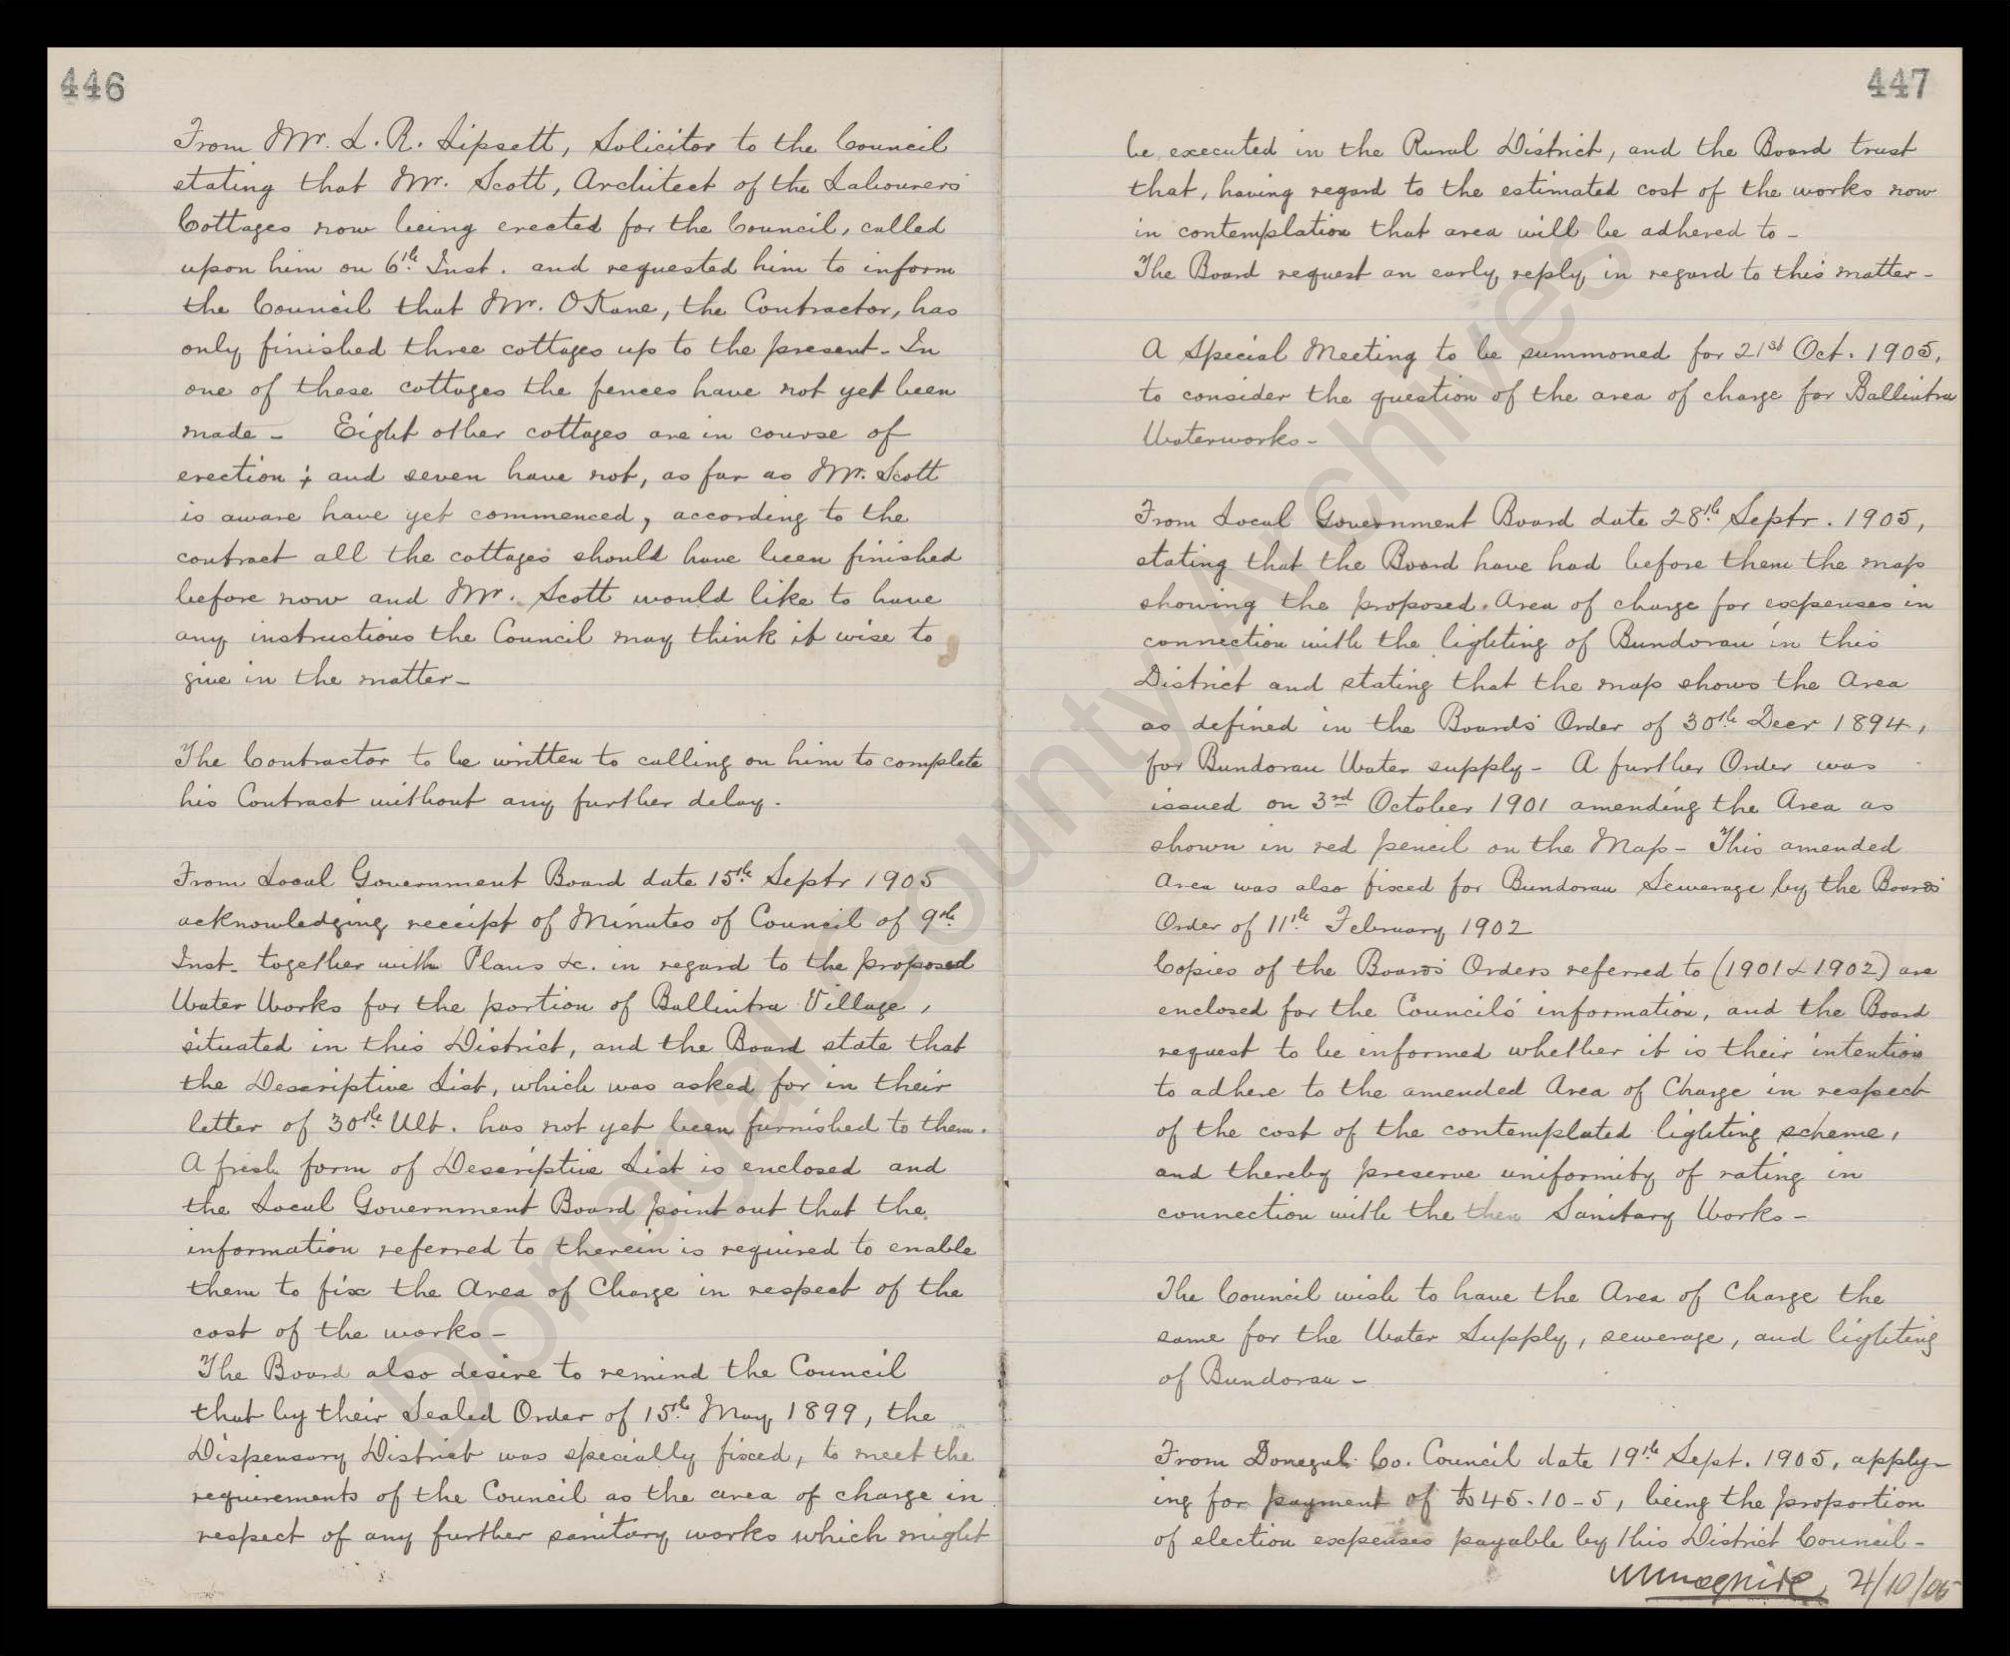 446
From Mr. L. R. Lipsett, Solicitor to the Council
stating that Mr. Scott, Architect of the Labourers'
Cottages now being erected for the Council, called
upon him on 6th Inst. and requested him to inform
the Council that Mr. O'Kane, the Contractor, has
only finished three cottages up to the present - In
one of these cottages the fences have not yet been
made - Eight other cottages are in course of
erection; and seven have not, as far as Mr. Scott
is aware have yet commenced, according to the
contract all the cottages should have been finished
before now and Mr. Scott would like to have
any instructions the Council may think it wise to
give in the matter -
The Contractor to be written to calling on him to complete
his Contract without any further delay.
From Local Government Board date 15th Septr 1905
acknowledging receipt of Minutes of Council of 9th
Inst. together with Plans &c. in regard to the proposed
Water Works for the portion of Ballintra Village,
situated in this District, and the Board state that
the Descriptive List, which was asked for in their
letter of 30th Ult. has not yet been furnished to them.
A fresh form of Descriptive List is enclosed and
the Local Government Board point out that the
information referred to therein is required to enable
them to fix the Area of Charge in respect of the
cost of the works -
The Board also desire to remind the Council
that by their Sealed Order of 15th May 1899, the
Dispensary District was specially fixed, to meet the
requirements of the Council as the area of charge in
respect of any further sanitary works which might
447
be executed in the Rural District, and the Board trust
that, having regard to the estimated cost of the works now
in contemplation that area will be adhered to -
The Board request an early reply in regard to this matter -
A Special Meeting to be summoned for 21st Oct. 1905,
to consider the question of the area of charge for Ballintra
Waterworks -
From Local Government Board date 28th Septr. 1905,
stating that the Board have had before them the map
showing the proposed Area of charge for expenses in
connection with the lighting of Bundoran in this
District and stating that the map shows the Area
as defined in the Boards' Order of 30th Decr 1894,
for Bundoran Water supply - A further Order was
issued on 3rd October 1901 amending the Area as
shown in red pencil on the Map - This amended
Area was also fixed for Bundoran Sewerage by the Boards'
Order of 11th February 1902
Copies of the Boards' Orders referred to (1901 & 1902) are
enclosed for the Council's information, and the Board
request to be informed whether it is their intention
to adhere to the amended Area of Charge in respect
of the cost of the contemplated lighting scheme,
and thereby preserve uniformity of rating in
connection with the then Sanitary Works -
The Council wish to have the Area of Charge the
same for the Water Supply, sewerage, and lighting
of Bundoran -
From Donegal Co. Council date 19th Sept. 1905, apply-
ing for payment of £45-10-5, being the proportion
of election expenses payable by this District Council -
21/10/05
Donegal County Archives